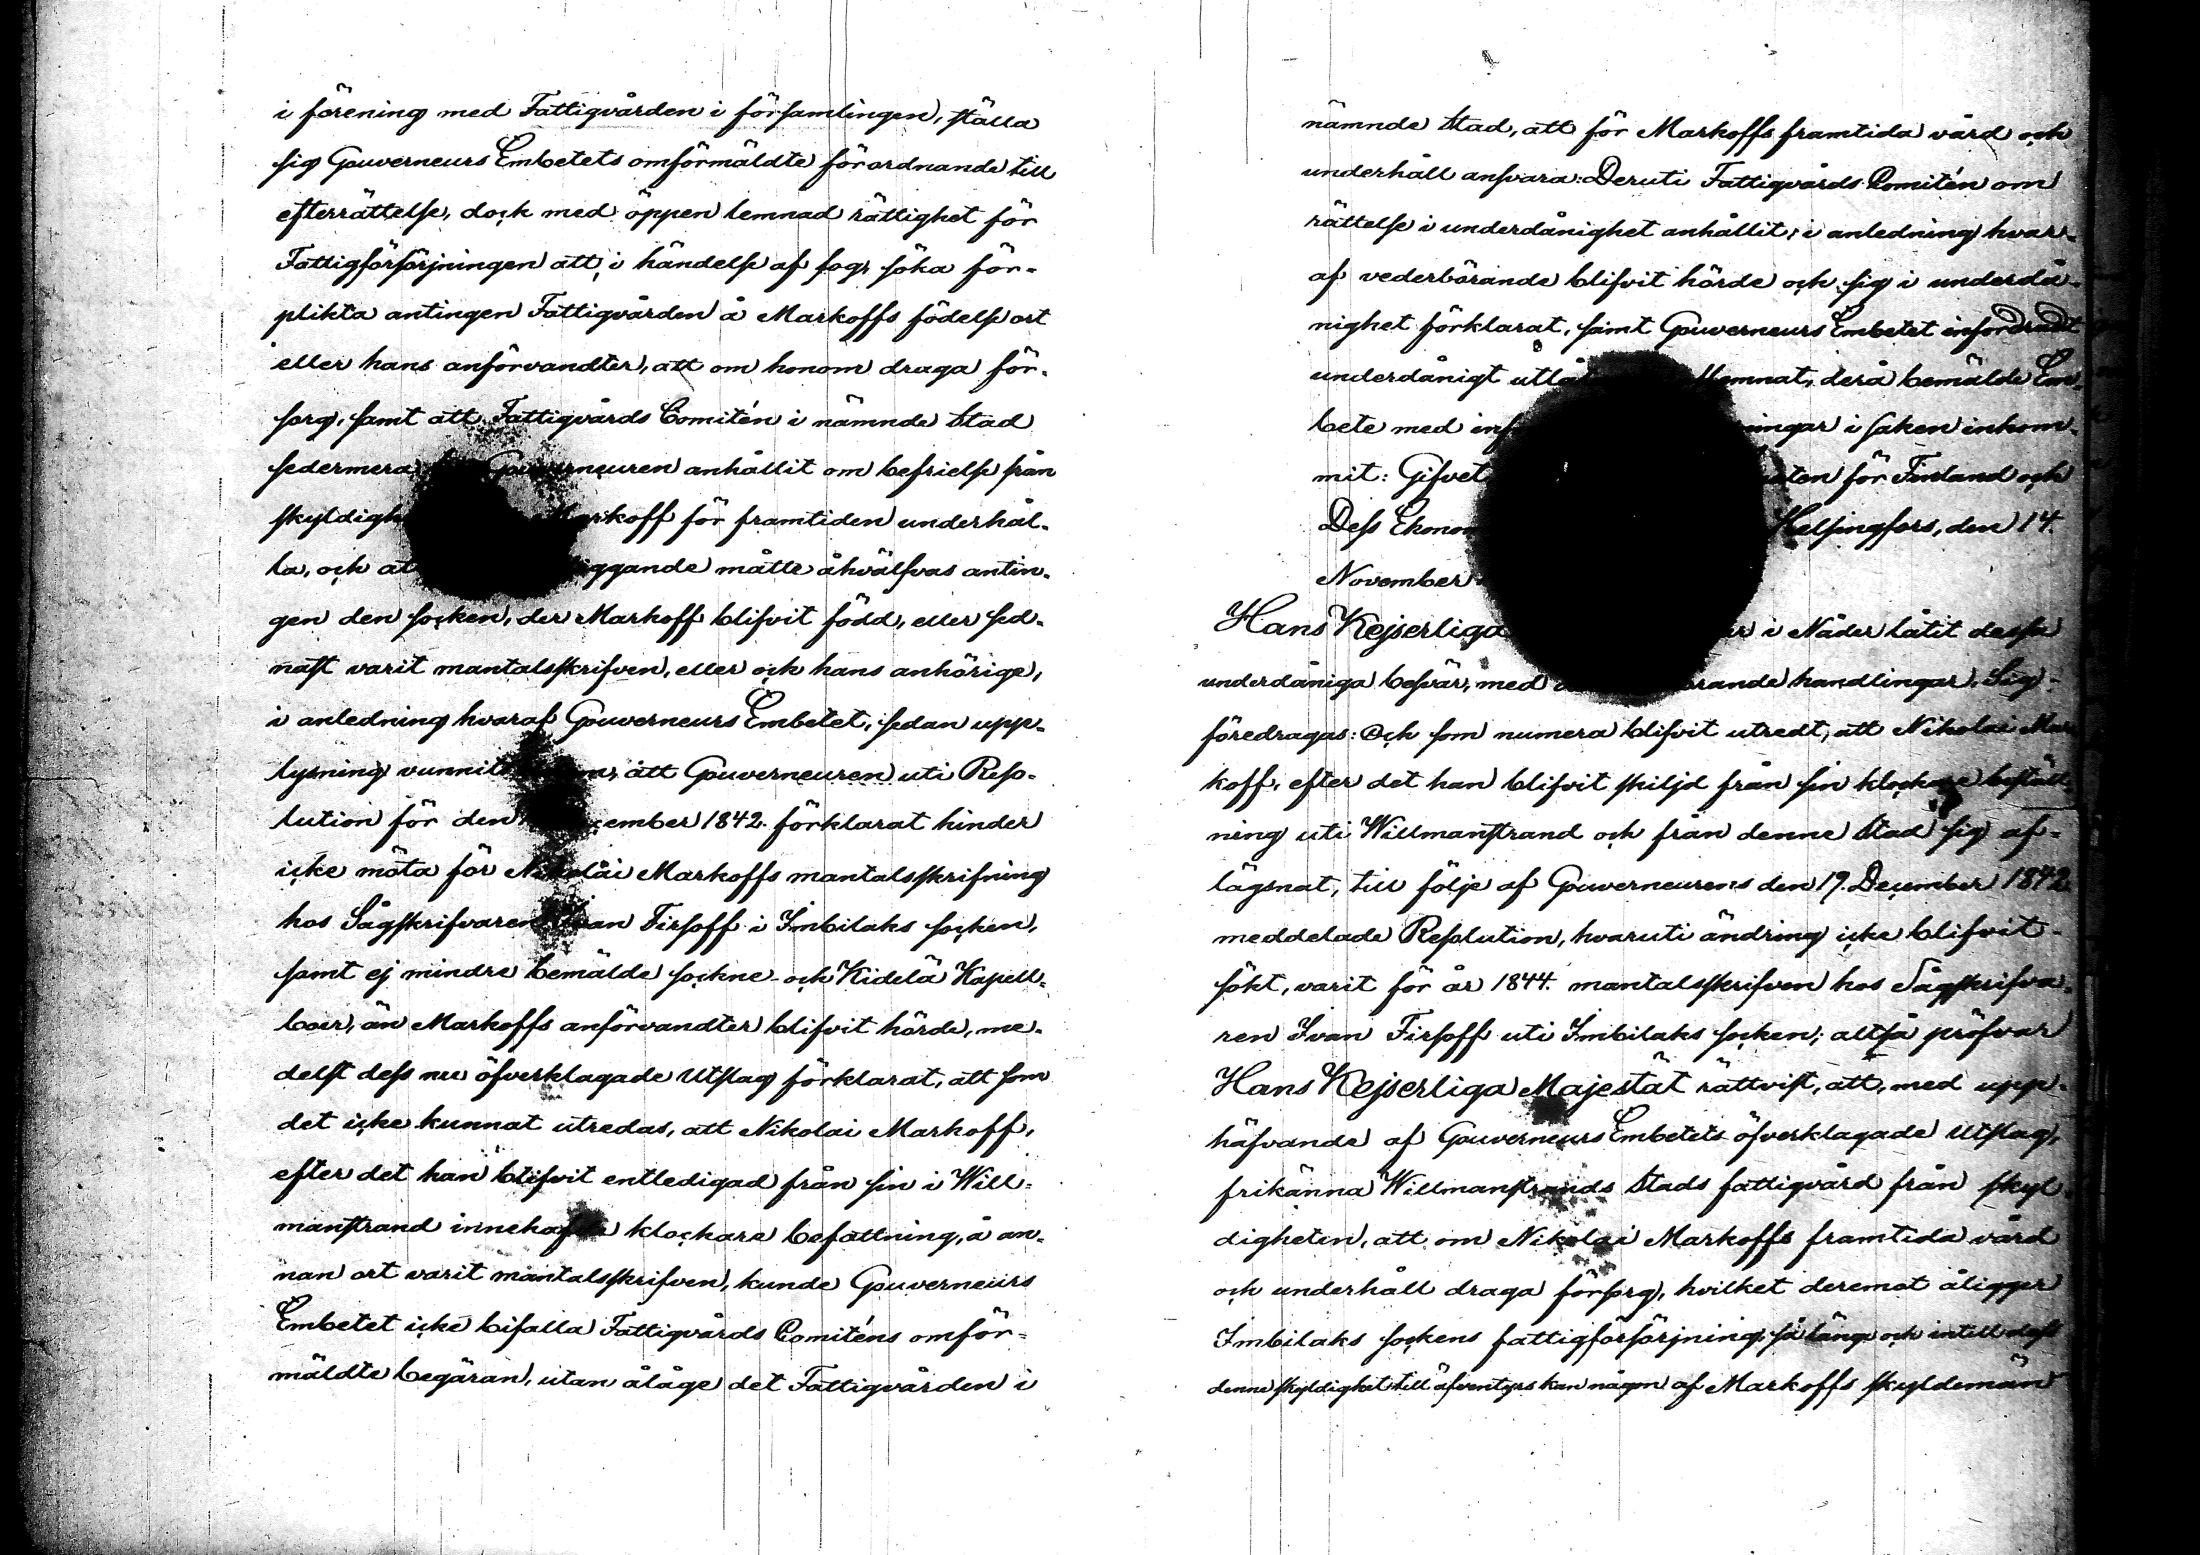 i förening med Fattigvården i församlingen, ställa
sig Gouverneurs Embetets omförmäldte förordnande till
efterrättelse, dock med öppen lemnad rättighet för
Fattigförsörjningen att, i händelse af fog, söka för-
plikta antingen Fattigvården å Markoffs födelseort
eller hans anförvandter, att om honom draga för-
sorg, samt att Fattigvårds Comitén i nämnde Stad
sedermera Gouverneuren anhållit om befrielse från
skyldigh Markoff för framtiden underhål-
la, och at iggande måtte åhvälfvas antin-
gen den socken, der Markoff blifvit född, eller sed-
nast varit mantalsskrifven, eller ock hans anhörige,
i anledning hvaraf Gouverneurs Embetet, sedan upp-
lysning vunnits om, att Gouverneuren uti Reso-
lution för den ember 1842 förklarat hinder
icke möta för Nikolai Markoffs mantalsskrifning
hos Sågskrifvaren Ivan Firsoff i Imbilaks socken,
samt ej mindre bemälde sockne- och Kidelä Kapell-
boer, än Markoffs anförvandter blifvit hörde, me-
delst dess nu öfverklagade Utslag förklarat, att som
det icke kunnat utredas, att Nikolai Markoff,
efter det han blifvit entledigad från sin i Will-
manstrand innehafda klockare befattning, å an-
nan ort varit mantalsskrifven, kunde Gouverneurs
Embetet icke bifalla Fattigvårds Comiténs omför-
mäldte begäran, utan ålåge det Fattigvården i
nämnde Stad, att för Markoffs framtida vård och
underhåll ansvara: Deruti Fattigvårds Comitén om
rättelse i underdånighet anhållit; i anledning hvar-
af vederbörande blifvit hörde och sig i underdå-
nighet förklarat, samt Gouverneurs Embetet infordradt
underdånigt utlå lemnat, derå bemälde Em-
bete med inf ningar i saken inkom-
mit: Gifvet aten för Finland och
Dess Ekono Helsingfors, den 14.
November
Hans Kejserliga ar i Nåder låtit dessa
underdåniga besvär, med rande handlingar, Sig
föredragas: Och som numera blifvit utredt, att Nikolai Mar
koff, efter det han blifvit skiljd från sin klockare beställ-
ning uti Willmanstrand och från denne Stad sig af-
lägsnat, till följe af Gouverneurens den 19. December 1842
meddelade Resolution, hvaruti ändring icke blifvit
sökt, varit för år 1844 mantalsskrifven hos Sågskrifva-
ren Ivan Firsoff uti Imbilaks socken; altså pröfvar
Hans Kejserliga Majestät rättvist, att, med upp-
häfvande af Gouverneurs Embetets öfverklagade Utslag,
frikänna Willmanstrands Stads fattigvård från skyl
digheten, att om Nikolai Markoffs framtida vård
och underhåll draga försorg, hvilket deremot åligger
Imbilaks sockens fattigförsörjning, så länge och intill dess
denna skyldighet till äfventyrs kan någon af Markoffs skyldemän